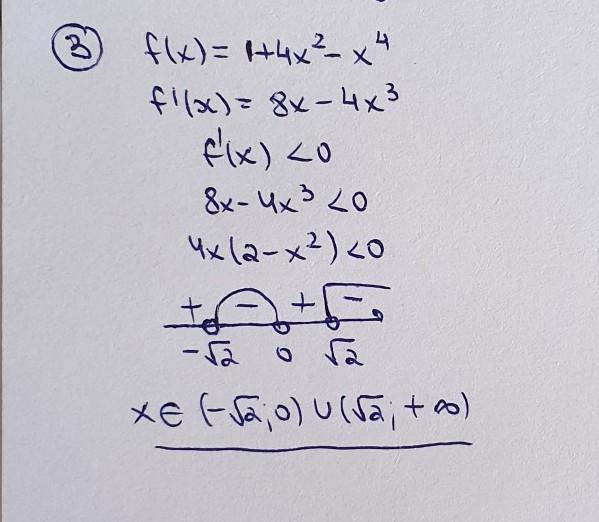 ③ f(x) = 1+4x² - x⁴
f'(x) = 8x - 4x³
f'(x) < 0
8x - 4x³ < 0
4x(2-x²) < 0
+ - + -
-√2 0 √2
x ∈ (-√2; 0) ∪ (√2; +∞)